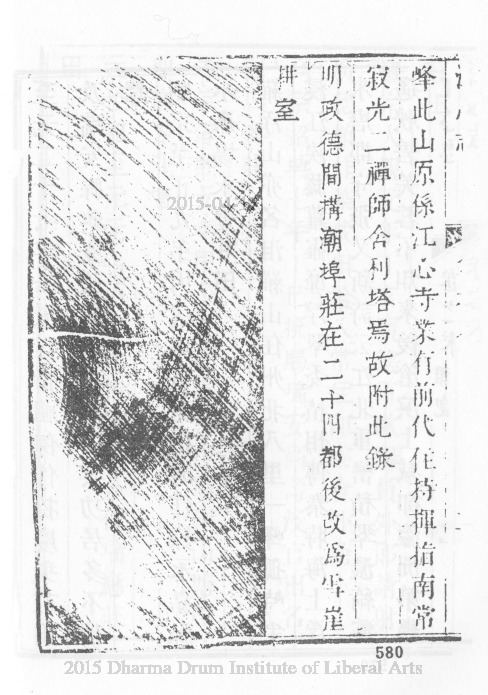 峰此山原係江心寺業有前代住持揮指南常
寂光二禪師舍利塔焉故附此錄
明政德間搆潮埠莊在二十四都後改為雪崖
耕室
580
2015-04
2015 Dharma Drum Institute of Liberal Arts